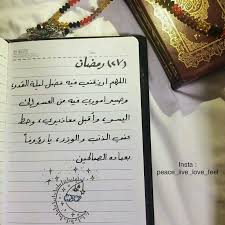 (٢٧) رمضان
اللهم ارزقني فيه فضل ليلة القدر
وصير أموري فيه من العسر إلى
اليسر، وأقبل معاذيري، وحط
عني الذنب والوزر، يا رؤوفاً
بعباده الصالحين.
Insta :
peace_live_love_feel